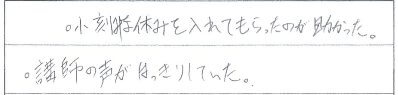 ○小刻な休みを入れてもらったのが助かった。
○講師の声がはっきりしていた。